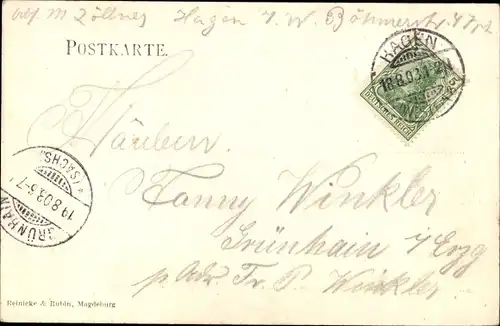 Abs. M Zöllner Hagen i. W. Böhmerstr. 47
POSTKARTE.
HAGEN
18.8.03.
Fräulein
Fanny Winkler
Grünhain i/Erzg
p. Adr. Fr. P. Winkler
(SACHS.)
19.8.03.6-7
GRÜNHAIN
Reinicke & Rubin, Magdeburg